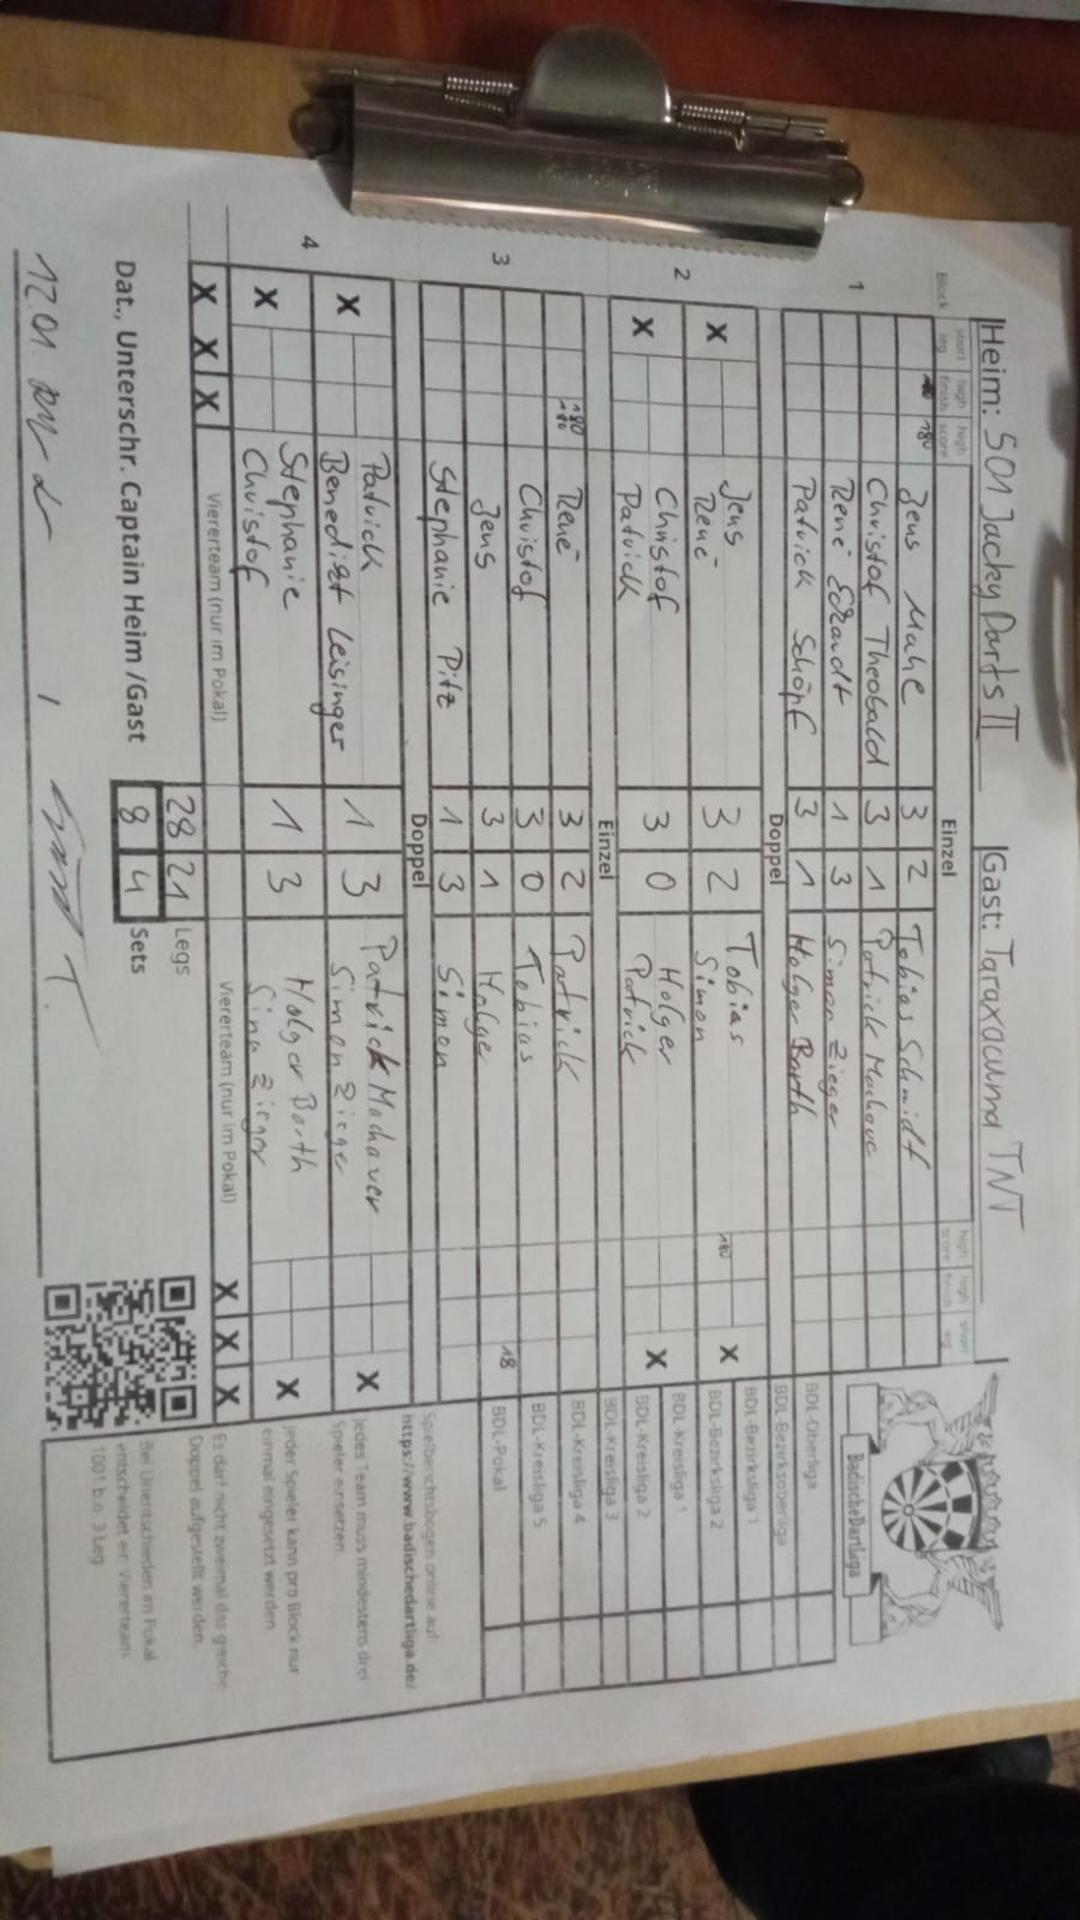 Heim: 501 Jacky Darts II Gast: Taraxacuma TNT
Block short leg high finish high score Einzel high score high finish short leg
1
180 Jens Mahe 3 2 Tobias Schmidt
Christof Theobald 3 1 Patrick Machauer
René Erandt 1 3 Simon Zieger
Patrick Schöpf 3 1 Holger Barth
Doppel
2
X Jens 3 2 Tobias X
René Simon 180
X Christof 3 0 Holger X
Patrick Patrick
Einzel
3
180 180 René 3 2 Patrick
Christof 3 0 Tobias
Jens 3 1 Holger 18
Stephanie Pitz 1 3 Simon
Doppel
4
X Patrick 1 3 Patrick Machauer X
Benedikt Leisinger Simon Zieger
X Stephanie 1 3 Holger Barth X
Christof Sina Zieger
X X X Viererteam (nur im Pokal) Viererteam (nur im Pokal) X X X
28 21 Legs
Dat., Unterschr. Captain Heim /Gast 8 4 Sets
12.01.
BadischeDartLiga
BDL-Oberliga
BDL-Bezirksoberliga
BDL-Bezirksliga 1
BDL-Bezirksliga 2
BDL-Kreisliga 1
BDL-Kreisliga 2
BDL-Kreisliga 3
BDL-Kreisliga 4
BDL-Kreisliga 5
BDL-Pokal
Spielberichtsbogen online auf:
https://www.badischedartliga.de/
Jedes Team muss mindestens drei
Spieler einsetzen.
Jeder Spieler kann pro Block nur
einmal eingesetzt werden
Es darf nicht zweimal das gleiche
Doppel aufgestellt werden.
Bei Unentschieden im Pokal
entscheidet ein Viererteam
1001 b.o. 3 Leg